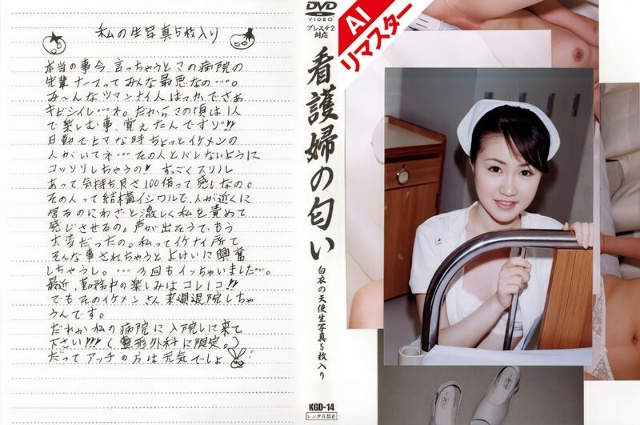 私の生写真5枚入り
本当の事今、言っちゃうとこの病院の
先輩ナースってみんな最悪なの…。
み〜んなツマンナイ人ばっかでさぁ
キビシイし…ネ。だからこの頃は1人
で楽しむ事、覚えたんですゾ!!
日勤でヒマな時ちょっとイケメンの
人がいてネ…その人とバレないように
コッソリしちゃうの!!すっごくスリル
あって気持ち良さ100倍って感じなの。
その人って結構イジワルで、人が近くに
居るのにわざと激しく私を責めて
感じさせるの。声が出そうで、もう
大変だったの。私ってイケナイ所で
そんな事されちゃうとよけいに興奮
しちゃうし。…3回もイッちゃいました…。
最近、勤務中の楽しみはコレコレ!!
でもそのイケメンさん来週退院しちゃ
うんです。
だれか私の病院に入院しに来て
下さい!!!(整形外科に限定。)
だってアッチの方は元気でしょ
DVD
VIDEO
プレステ2
対応
看護婦の匂い
白衣の天使生写真5枚入り
KGD-14
レンタル禁止
AI
リマスター